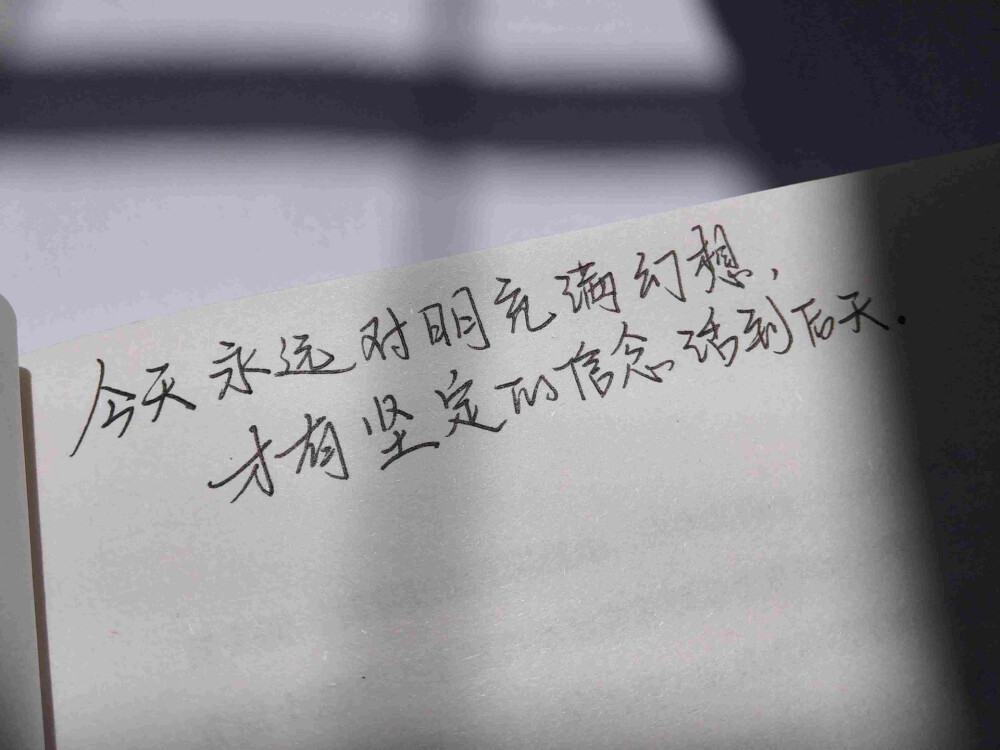 今天永远对明充满幻想,
才有坚定的信念活到后天.